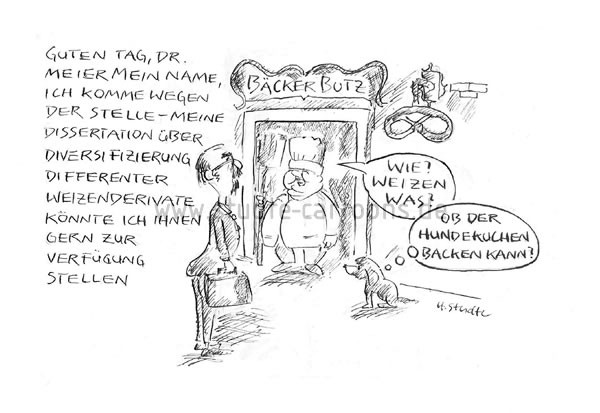 GUTEN TAG, DR.
MEIER MEIN NAME,
ICH KOMME WEGEN
DER STELLE - MEINE
DISSERTATION ÜBER
DIVERSIFIZIERUNG
DIFFERENTER
WEIZENDERIVATE
KÖNNTE ICH IHNEN
GERN ZUR
VERFÜGUNG
STELLEN
BÄCKER BUTZ
WIE?
WEIZEN
WAS?
OB DER
HUNDEKUCHEN
BACKEN KANN?
www.studte-cartoons.de
H. Studte